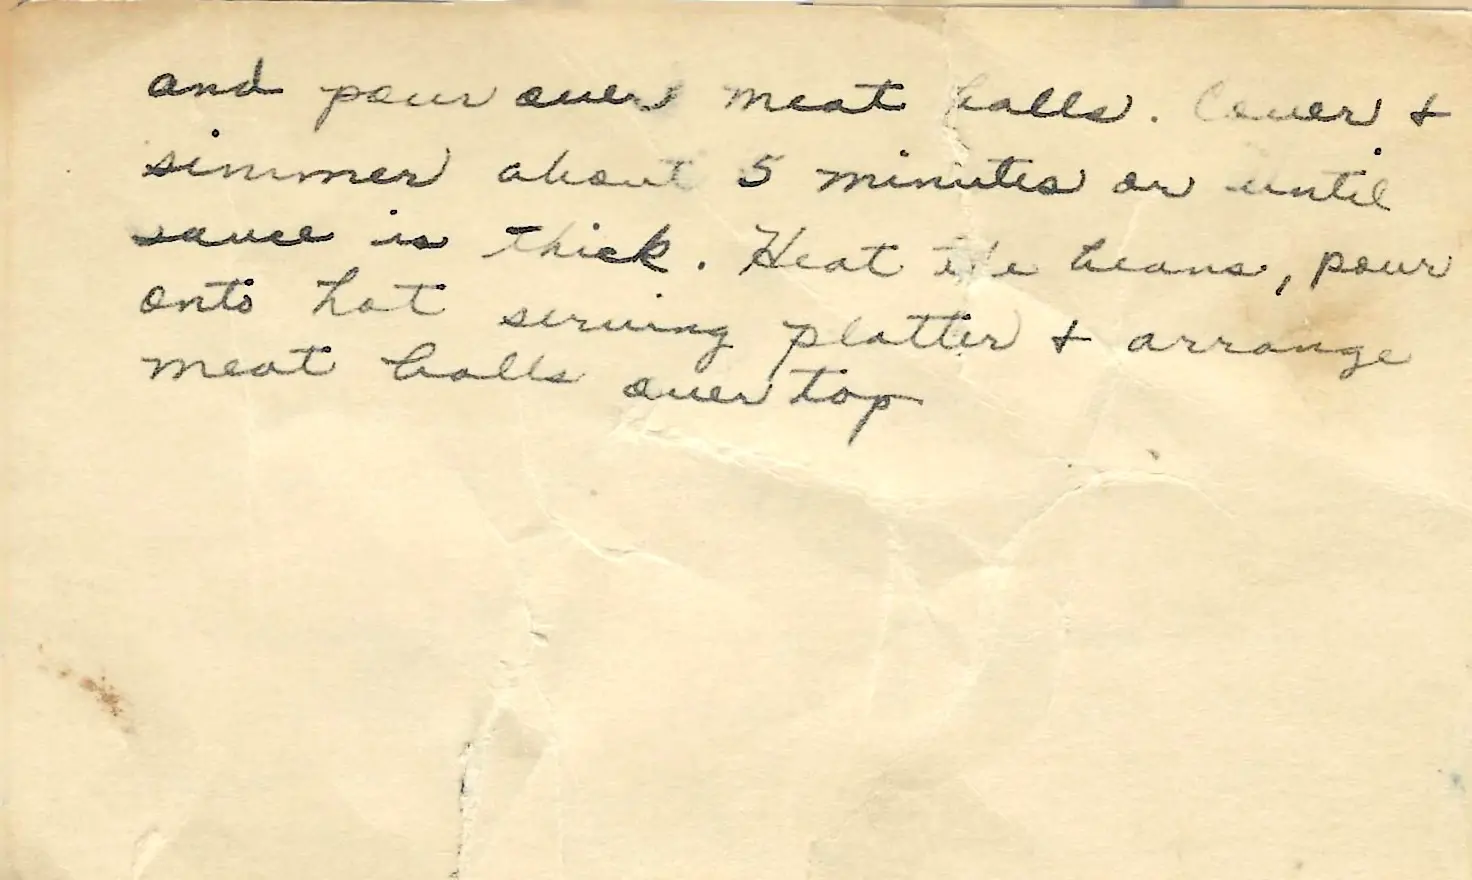 and pour over meat balls. Cover &
simmer about 5 minutes or until
sauce is thick. Heat the beans, pour
onto hot serving platter & arrange
meat balls over top